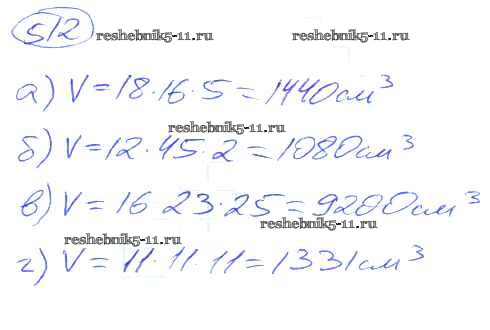 512 reshebnik5-11.ru reshebnik5-11.ru
а) V = 18·16·5 = 1440 см³
reshebnik5-11.ru
б) V = 12·45·2 = 1080 см³
в) V = 16 23·25 = 9200 см³
reshebnik5-11.ru
reshebnik5-11.ru
г) V = 11·11·11 = 1331 см³